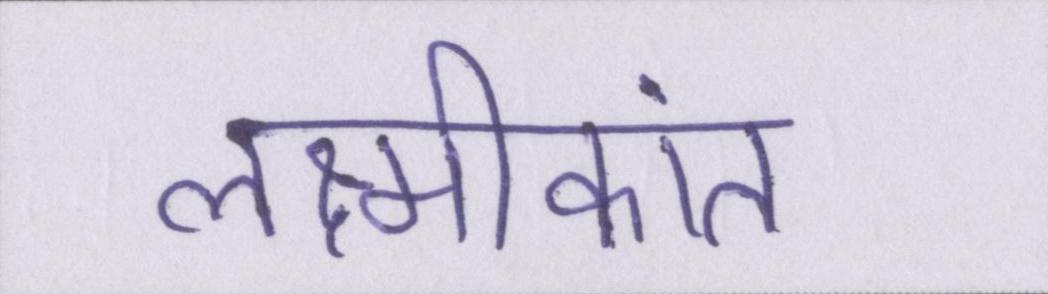 लक्ष्मीकांत